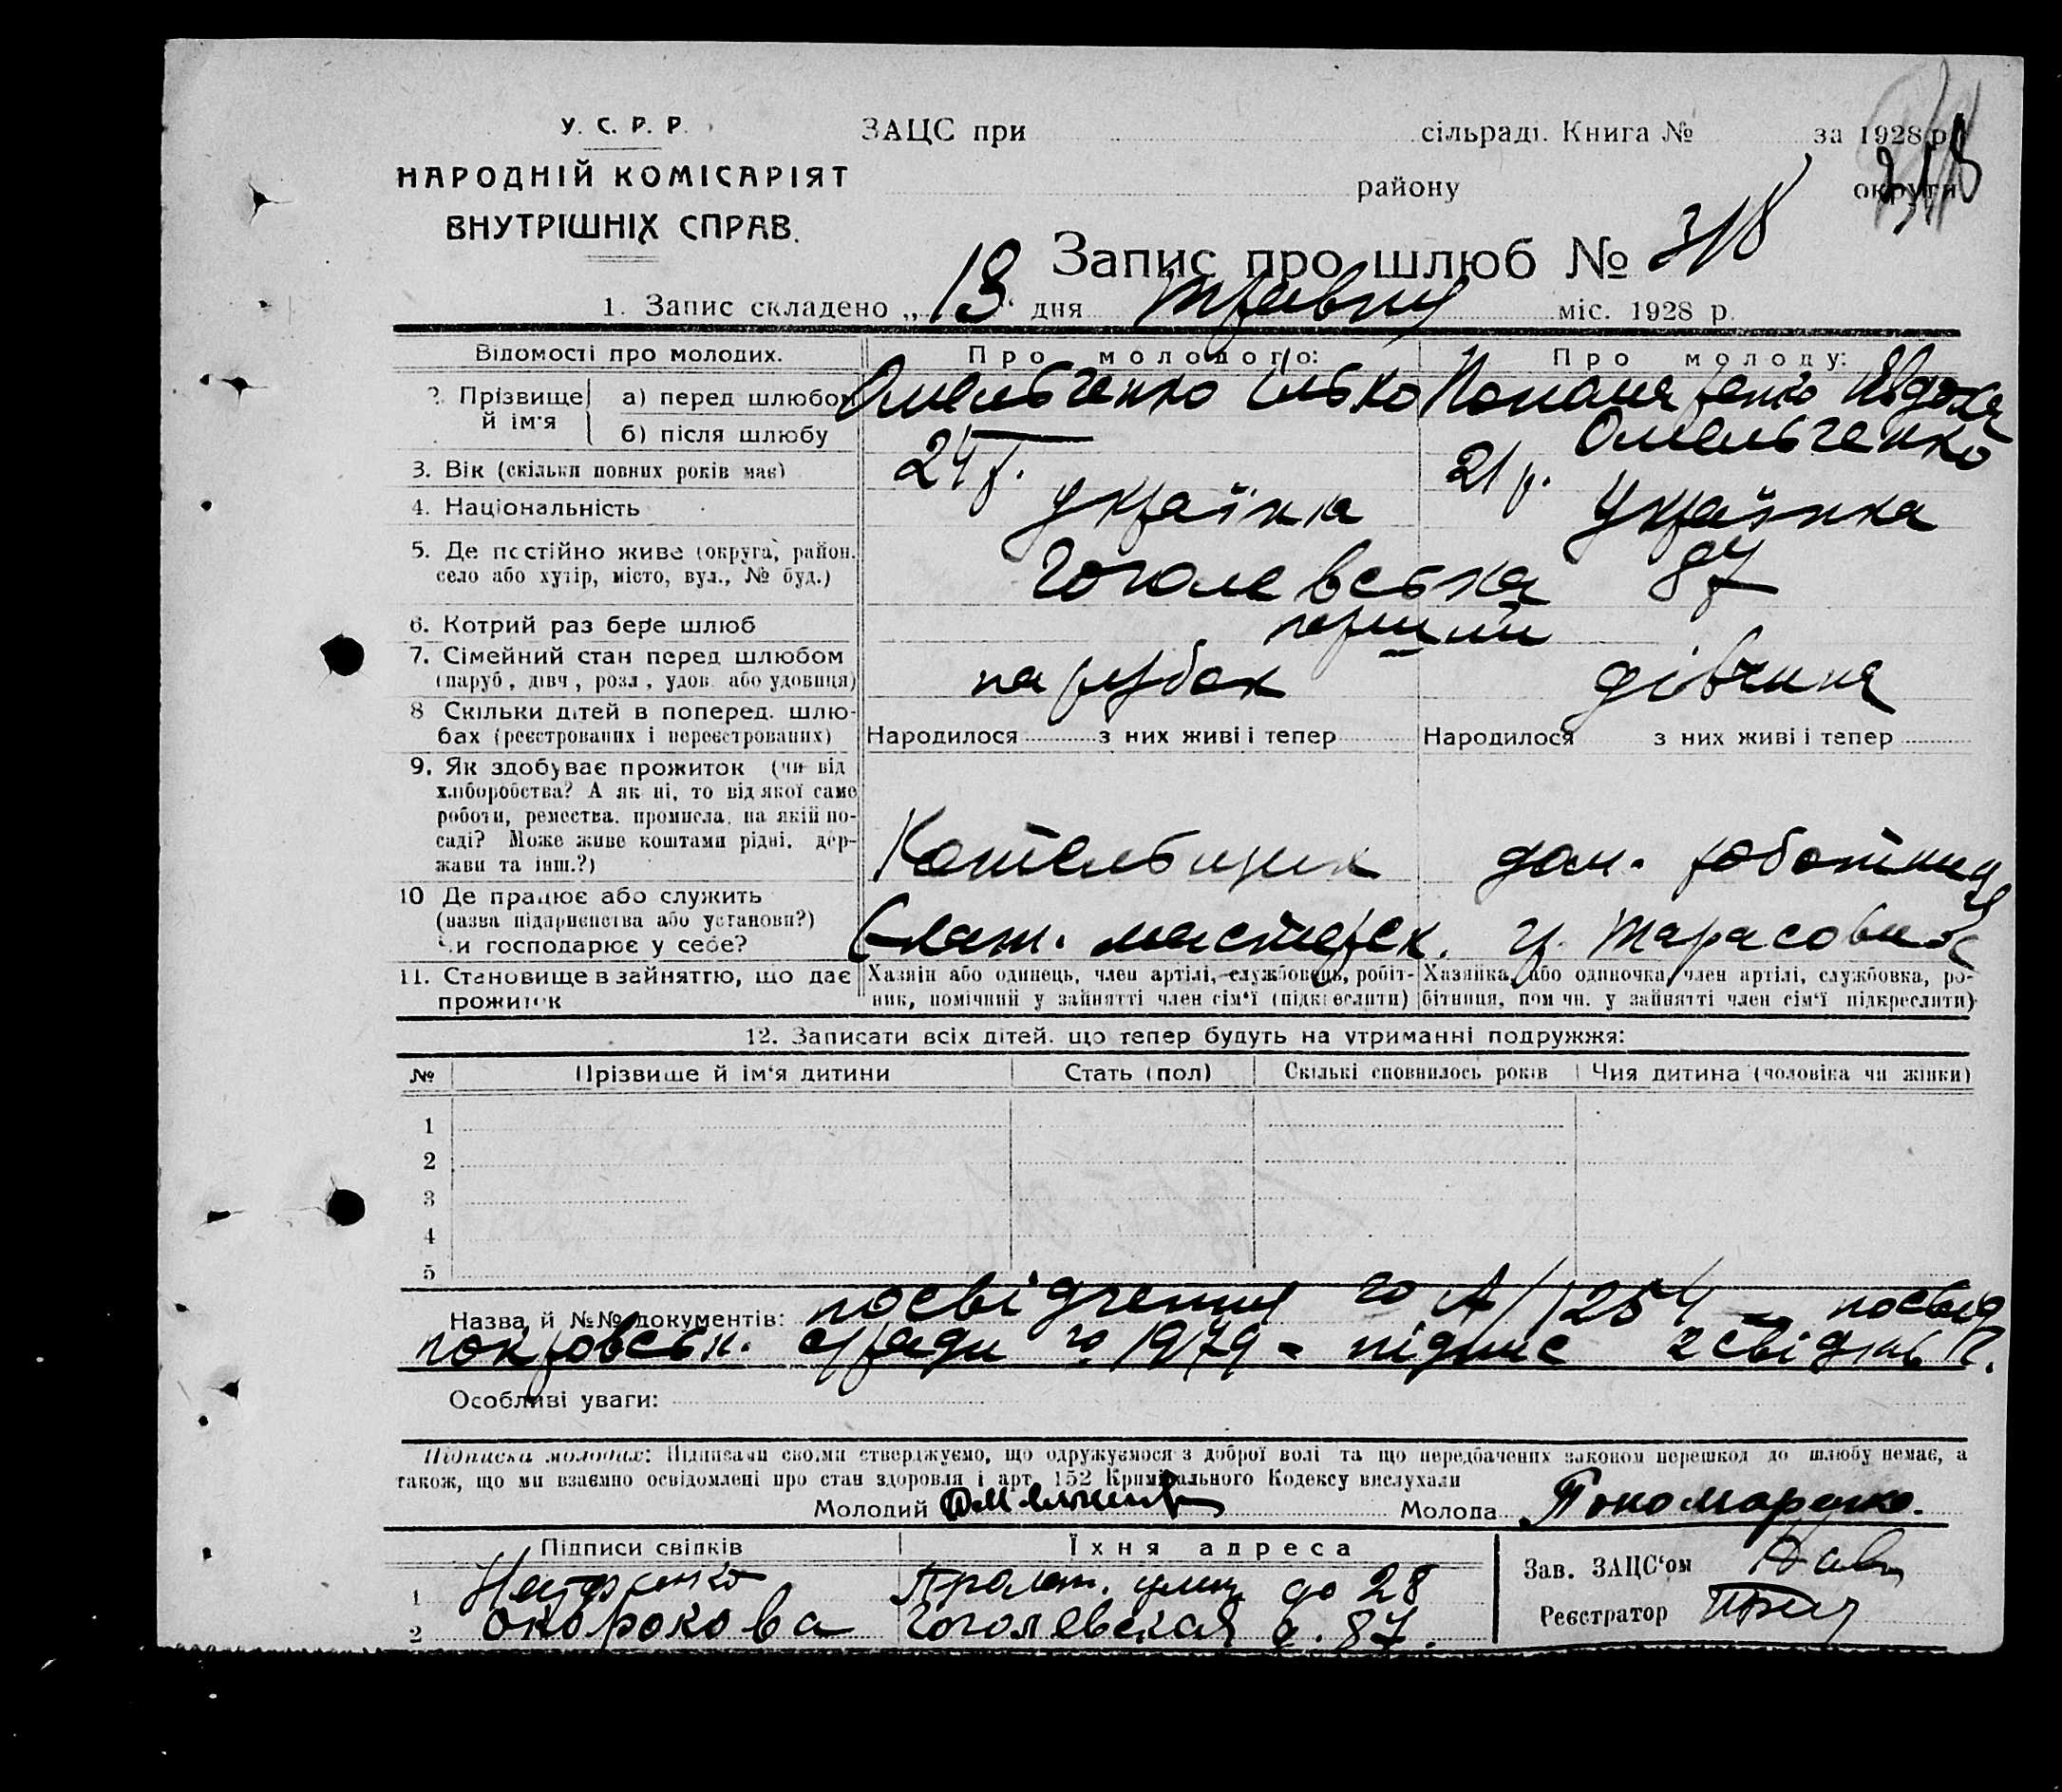 У. С. Р. Р.
НАРОДНІЙ КОМІСАРІЯТ
ВНУТРІШНІХ СПРАВ.
ЗАЦС при сільраді. Книга № за 1928 р.
району округи
318
Запис про шлюб № 318
1. Запис складено „ 18 дня травня міс. 1928 р.
Відомості про молодих. Про молодого: Про молоду:
2. Прізвище й ім'я а) перед шлюбом Омельченко Ілько Евдокія
б) після шлюбу Омельченко
3. Вік (скільки повних років має) 24 р. 21 р.
4. Національність українка Українка
5. Де постійно живе (округа, район. Гоголевська 87
село або хутір, місто, вул., № буд.)
6. Котрий раз бере шлюб перший
7. Сімейний стан перед шлюбом парубок дівчина
(паруб, дівч, розл, удов. або удовиця)
8 Скільки дітей в поперед. шлю-
бах (реєстрованих і нереєстрованих) Народилося з них живі і тепер Народилося з них живі і тепер
9. Як здобуває прожиток (чи від
хліборобства? А як ні, то від якої саме
роботи, ремества, промисла, на якій по-
саді? Може живе коштами рідні, дер-
жави та інш.?) Котельщик дом. роботниця
10 Де працює або служить
(назва підприємства або установи?) мастерск. у Тарасових
Чи господарює у себе?
11. Становище в зайняттю, що дає прожиток
Хазяїн або одинець, член артілі, службовець, робіт-
ник, помічний у зайнятті член сім'ї (підкреслити)
Хазяйка або одиночка, член артілі, службовка, ро-
бітниця, помічн. у зайнятті член сім'ї підкреслити)
12. Записати всіх дітей, що тепер будуть на утриманні подружжя:
№ Прізвище й ім'я дитини Стать (пол) Скількі сповнилось років Чия дитина (чоловіка чи жінки)
1
2
3
4
5
Назва й №№ документів: посвідчення А/1254 - посвід
покровськ. с/ради 1979 - підпис 2 свідків
Особливі уваги:
Підписка молодих: Підписами своїми стверджуємо, що одружуємося з доброї волі та що передбачених законом перешкод до шлюбу немає, а
також, що ми взаємно освідомлені про стан здоровля і арт. 152 Кримінального Кодексу вислухали
Молодий Молода Пономаренко.
Підписи свідків Їхня адреса
1 до 28
2 Окорокова Гоголевская 87.
Зав. ЗАЦС'ом
Реєстратор